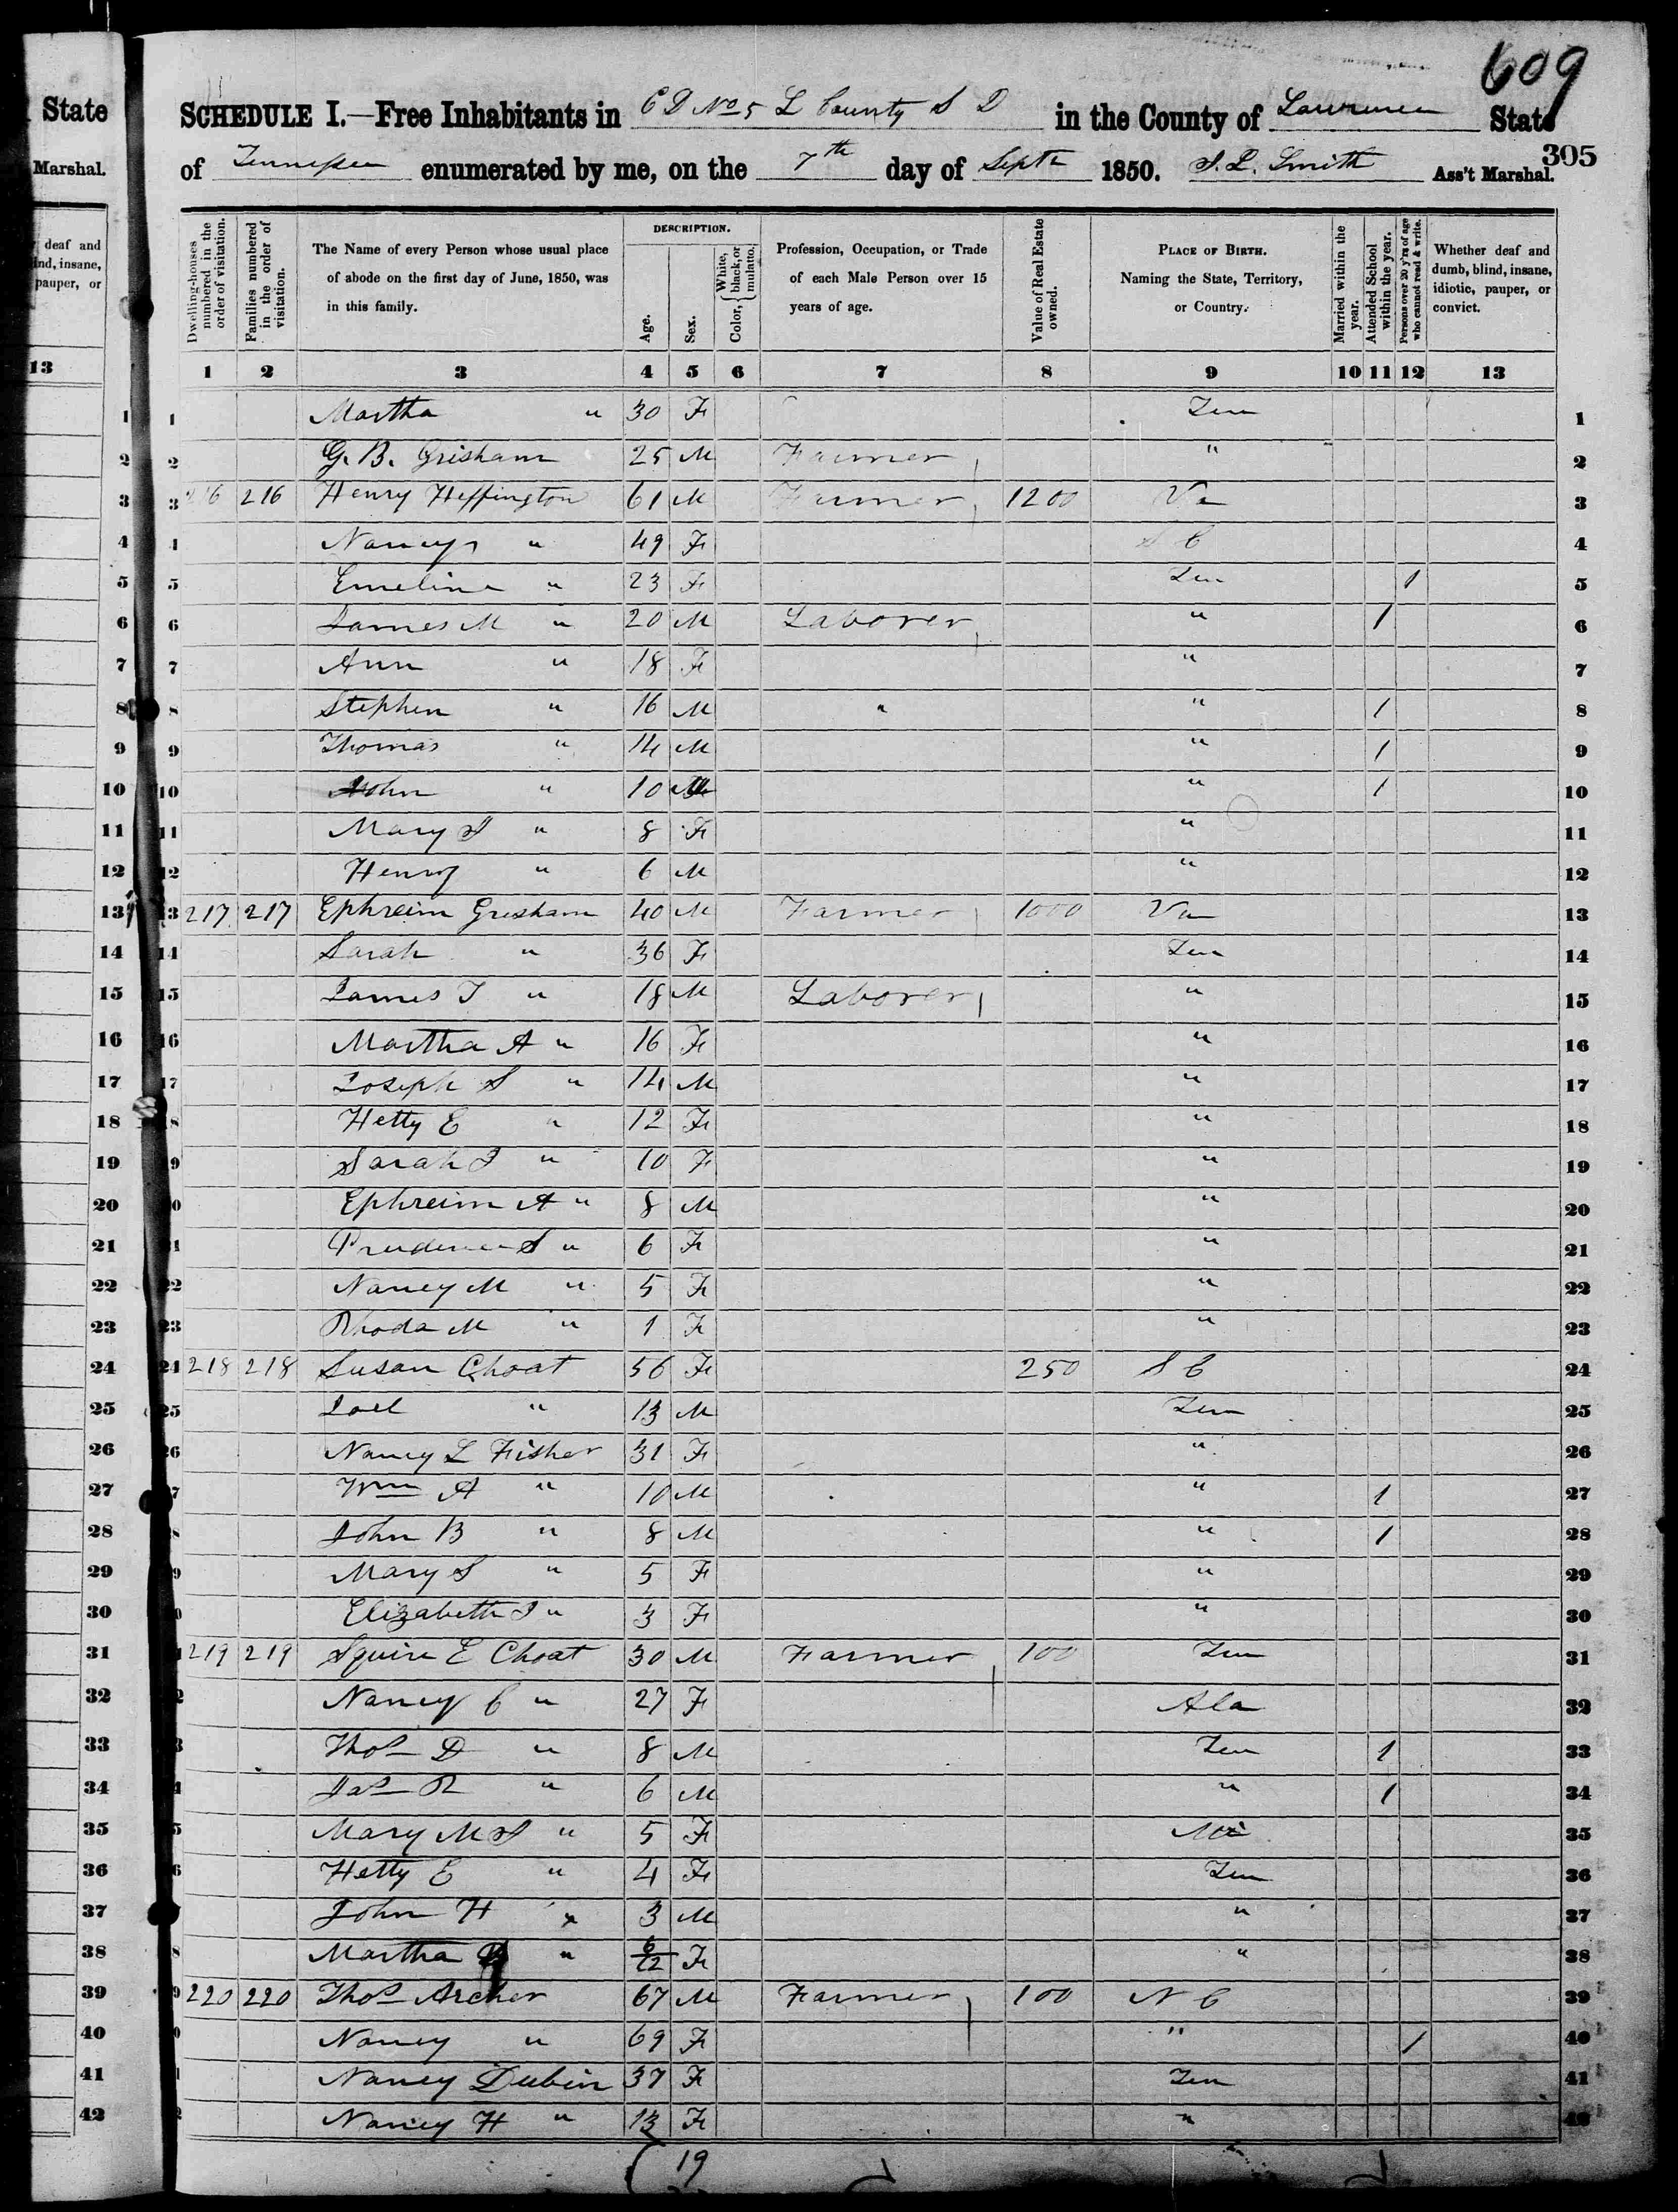 609
State
SCHEDULE I.—Free Inhabitants in C D No 5 L County S D in the County of Lawrence State
305
Marshal.
of Tennessee enumerated by me, on the 7th day of Septr 1850. Ass't Marshal.
deaf and
pauper, or
Dwelling-houses numbered in the order of visitation.
Families numbered in the order of visitation.
The Name of every Person whose usual place of abode on the first day of June, 1850, was in this family.
DESCRIPTION.
Age.
Sex.
Color, { White, black, or mulatto.
Profession, Occupation, or Trade of each Male Person over 15 years of age.
Value of Real Estate owned.
PLACE OF BIRTH. Naming the State, Territory, or Country.
Married within the year.
Attended School within the year.
Persons over 20 y'rs of age who cannot read & write.
Whether deaf and dumb, blind, insane, idiotic, pauper, or convict.
13 1 2 3 4 5 6 7 8 9 10 11 12 13
1 1 Martha " 30 F Ten 1
2 2 G. B. Grisham 25 M Farmer " 2
3 3 216 216 Henry Heffington 61 M Farmer 1200 Va 3
4 4 Nancy " 49 F S C 4
5 5 Emeline " 23 F Ten 1 5
6 6 James M " 20 M Laborer " 1 6
7 7 Ann " 18 F " 7
8 8 Stephen " 16 M " " 1 8
9 9 Thomas " 14 M " 1 9
10 10 John " 10 M " 1 10
11 11 Mary J " 8 F " 11
12 12 Henry " 6 M " 12
13 13 217 217 Ephreim Gresham 40 M Farmer 1000 Va 13
14 14 Sarah " 36 F Ten 14
15 15 James T " 18 M Laborer " 15
16 16 Martha A " 16 F " 16
17 17 Joseph S " 14 M " 17
18 8 Hetty E " 12 F " 18
19 9 Sarah J " 10 F " 19
20 0 Ephreim A " 8 M " 20
21 1 Prudence S " 6 F " 21
22 22 Nancy M " 5 F " 22
23 23 Rhoda M " 1 F " 23
24 24 218 218 Susan Choat 56 F 250 S C 24
25 25 Joel " 13 M Ten 25
26 26 Nancy L Fisher 31 F " 26
27 7 Wm A " 10 M " 1 27
28 8 John B " 8 M " 1 28
29 9 Mary S " 5 F " 29
30 0 Elizabeth J " 3 F " 30
31 1 219 219 Squire E Choat 30 M Farmer 100 Ten 31
32 2 Nancy C " 27 F Ala 32
33 3 Thos D " 8 M Ten 1 33
34 4 Jas R " 6 M " 1 34
35 5 Mary M J " 5 F 35
36 6 Hetty E " 4 F Ten 36
37 John H " 3 M " 37
38 8 Martha " 6/12 F " 38
39 9 220 220 Thos Archer 67 M Farmer 100 N C 39
40 0 Nancy " 69 F " 1 40
41 1 Nancy Dubin 37 F Ten 41
42 2 Nancy H " 13 F "
19